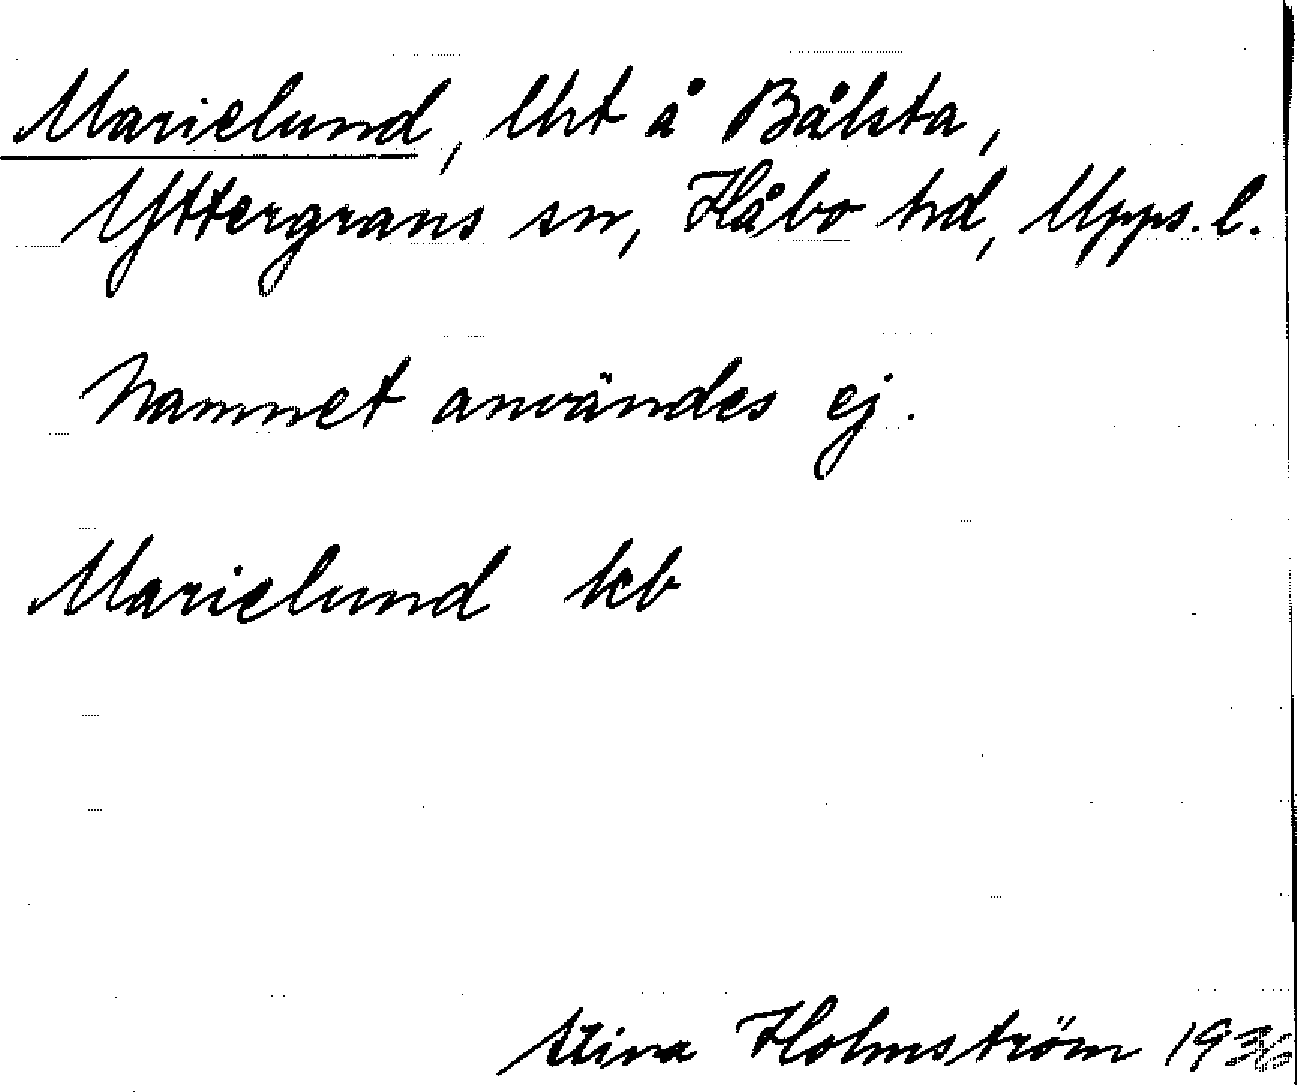 Marielund, lht å Bålsta,
Yttergrans sn, Håbo hd, Upps. l.
Namnet användes ej.
Marielund kb
Stina Holmström